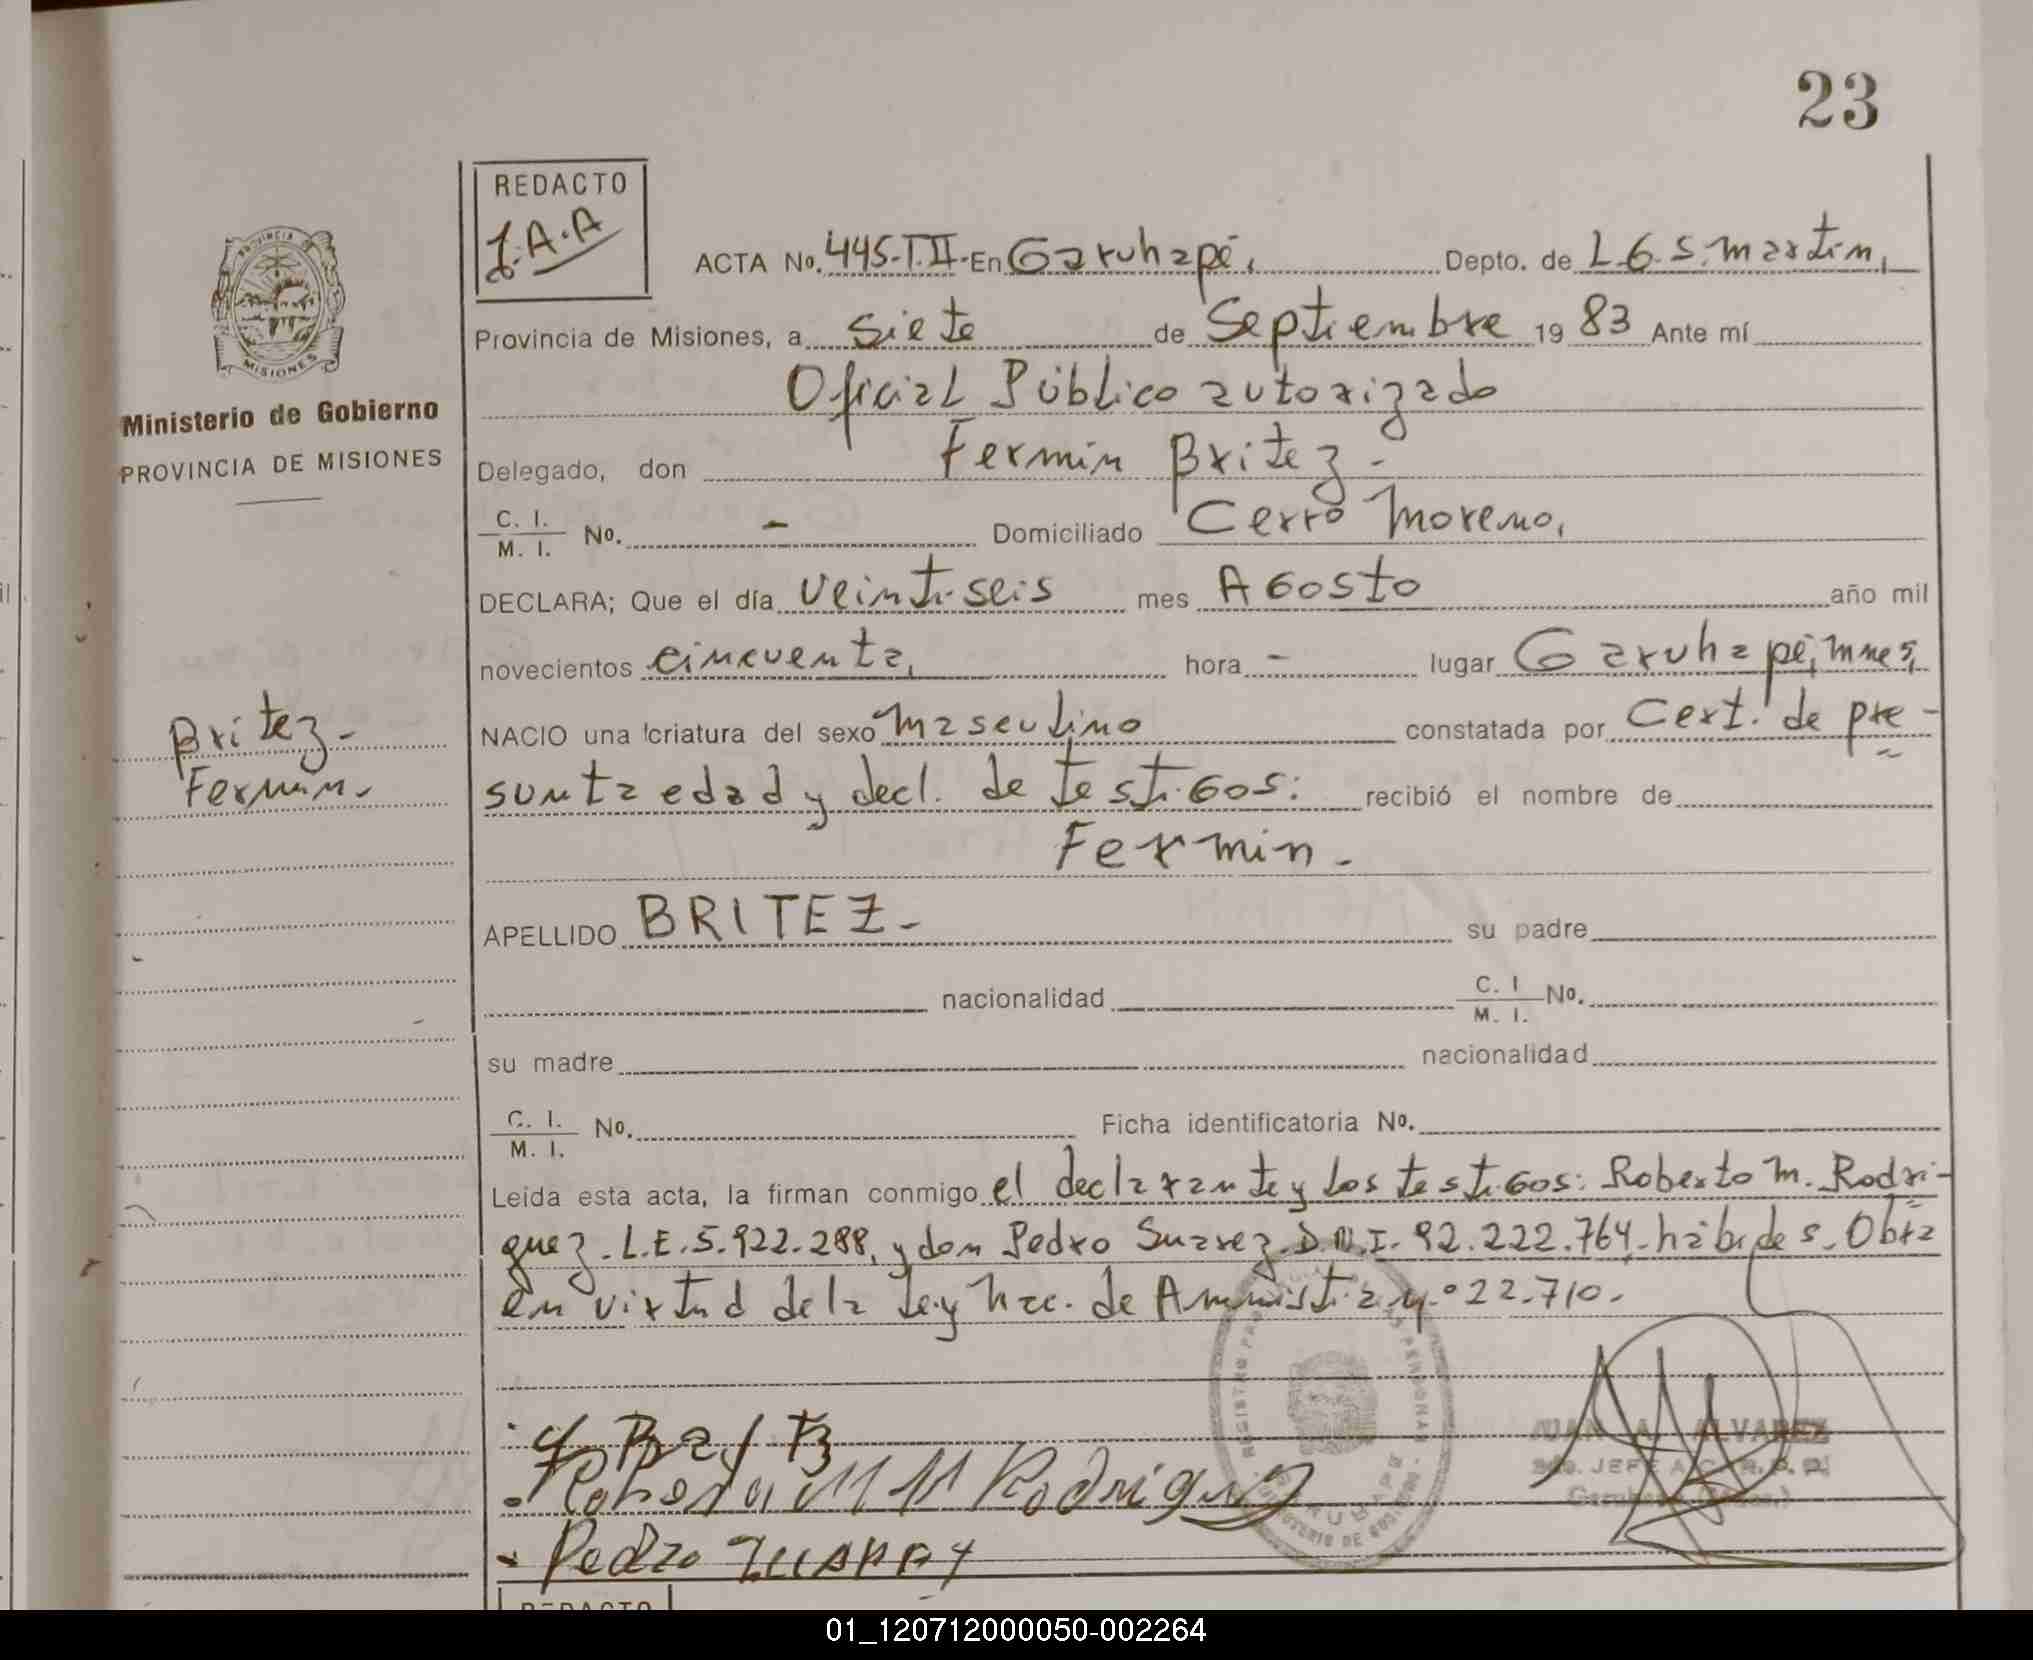 23
REDACTO
J.A.A
PROVINCIA DE
MISIONES
Ministerio de Gobierno
PROVINCIA DE MISIONES
ACTA No. 445-T.II- En Garuhapé, Depto. de L.G.S. martin,
Provincia de Misiones, a siete de Septiembre 19 83 Ante mí
Oficial Público autorizado
Delegado, don Fermin Britez -
C. I. / M. I. No. - Domiciliado Cerro Moreno,
DECLARA; Que el día veintiseis mes AGosto año mil
novecientos cincuenta, hora - lugar Garuhapé, mnes,
NACIO una criatura del sexo masculino constatada por Cert. de pre-
sunta edad y decl. de testiGos: recibió el nombre de
Fermin -
APELLIDO BRITEZ - su padre
nacionalidad C. I / M. I. No.
su madre nacionalidad
C. I. / M. I. No. Ficha identificatoria No.
Leida esta acta, la firman conmigo el declarante y los testiGos: Roberto M. Rodri-
guez. L.E. 5.922.288, y don Pedro Suarez. D.N.I. 92.222.764. hábides. Obra
en virtud de la Ley Nac. de Amnistia n° 22.710.
Britez -
Fermin -
Rodriguez
Pedro
JUAN A. ALVAREZ
JEFE
REGISTRO
REDACTO
01_120712000050-002264